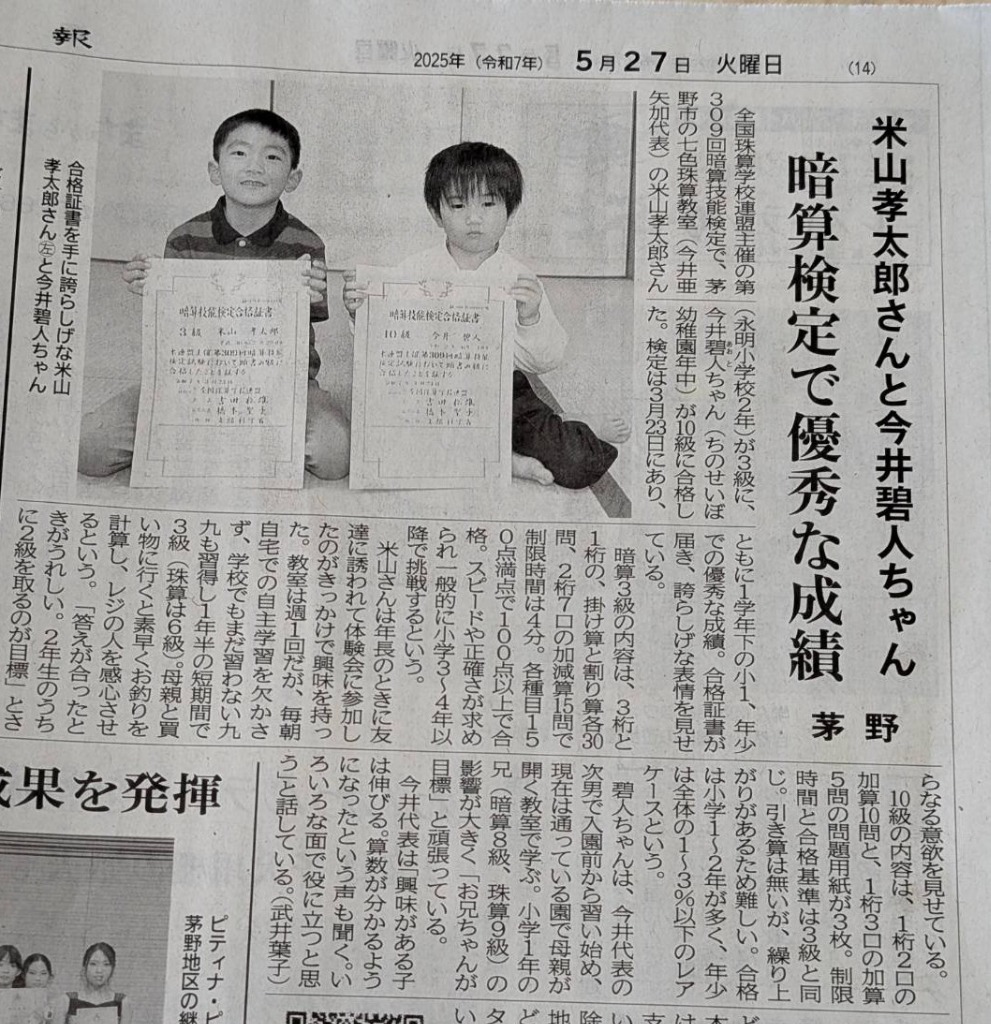 報
2025年（令和7年） 5月27日 火曜日 （14）
米山孝太郎さんと今井碧人ちゃん
暗算検定で優秀な成績
茅野
全国珠算学校連盟主催の第
309回暗算技能検定で、茅
野市の七色珠算教室（今井亜
矢加代表）の米山孝太郎さん
（永明小学校2年）が3級に、
今井碧人ちゃん（ちのせいぼ
あおと
幼稚園年中）が10級に合格し
た。検定は3月23日にあり、
ともに1学年下の小1、年少
での優秀な成績。合格証書が
届き、誇らしげな表情を見せ
ている。
暗算3級の内容は、3桁と
1桁の、掛け算と割り算各30
問、2桁7口の加減算15問で
制限時間は4分。各種目15
0点満点で100点以上で合
格。スピードや正確さが求め
られ一般的に小学3～4年以
降で挑戦するという。
米山さんは年長のときに友
達に誘われて体験会に参加し
たのがきっかけで興味を持っ
た。教室は週1回だが、毎朝
自宅での自主学習を欠かさ
ず、学校でもまだ習わない九
九も習得し1年半の短期間で
3級（珠算は6級）。母親と買
い物に行くと素早くお釣りを
計算し、レジの人を感心させ
るという。「答えが合ったと
きがうれしい。2年生のうち
に2級を取るのが目標」とさ
らなる意欲を見せている。
10級の内容は、1桁2口の
加算10問と、1桁3口の加算
5問の問題用紙が3枚。制限
時間と合格基準は3級と同
じ。引き算は無いが、繰り上
がりがあるため難しい。合格
は小学1～2年が多く、年少
は全体の1～3％以下のレア
ケースという。
碧人ちゃんは、今井代表の
次男で入園前から習い始め、
現在は通っている園で母親が
開く教室で学ぶ。小学1年の
兄（暗算8級、珠算9級）の
影響が大きく「お兄ちゃんが
目標」と頑張っている。
今井代表は「興味がある子
は伸びる。算数が分かるよう
になったという声も聞く。い
ろいろな面で役に立つと思
う」と話している。（武井葉子）
合格証書を手に誇らしげな米山
孝太郎さん㊧と今井碧人ちゃん
暗算技能検定合格証書
3級 米山 孝太郎
暗算技能検定合格証書
10級 今井 碧人
成果を発揮
ピティナ・ピ
茅野地区の継